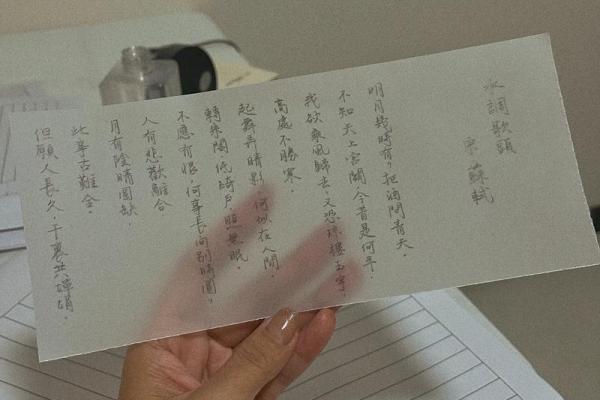 水調歌頭
宋 蘇軾
明月幾時有，把酒問青天。
不知天上宮闕，今昔是何年。
我欲乘風歸去，又恐瓊樓玉宇，
高處不勝寒。
起舞弄晴影，何似在人間。
轉朱閣，低綺戶，照無眠。
不應有恨，何事長向別時圓，
人有悲歡離合
月有陰晴圓缺，
此事古難全。
但願人長久，千裏共嬋娟。